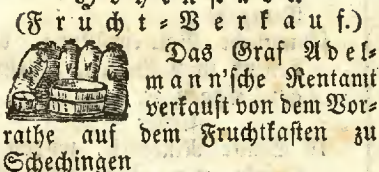 (Frucht=Verkauf.)
Das Graf Adel=
mann'sche Rentamt
verkauft von dem Vor=
rathe auf dem Fruchtkasten zu
Schechingen